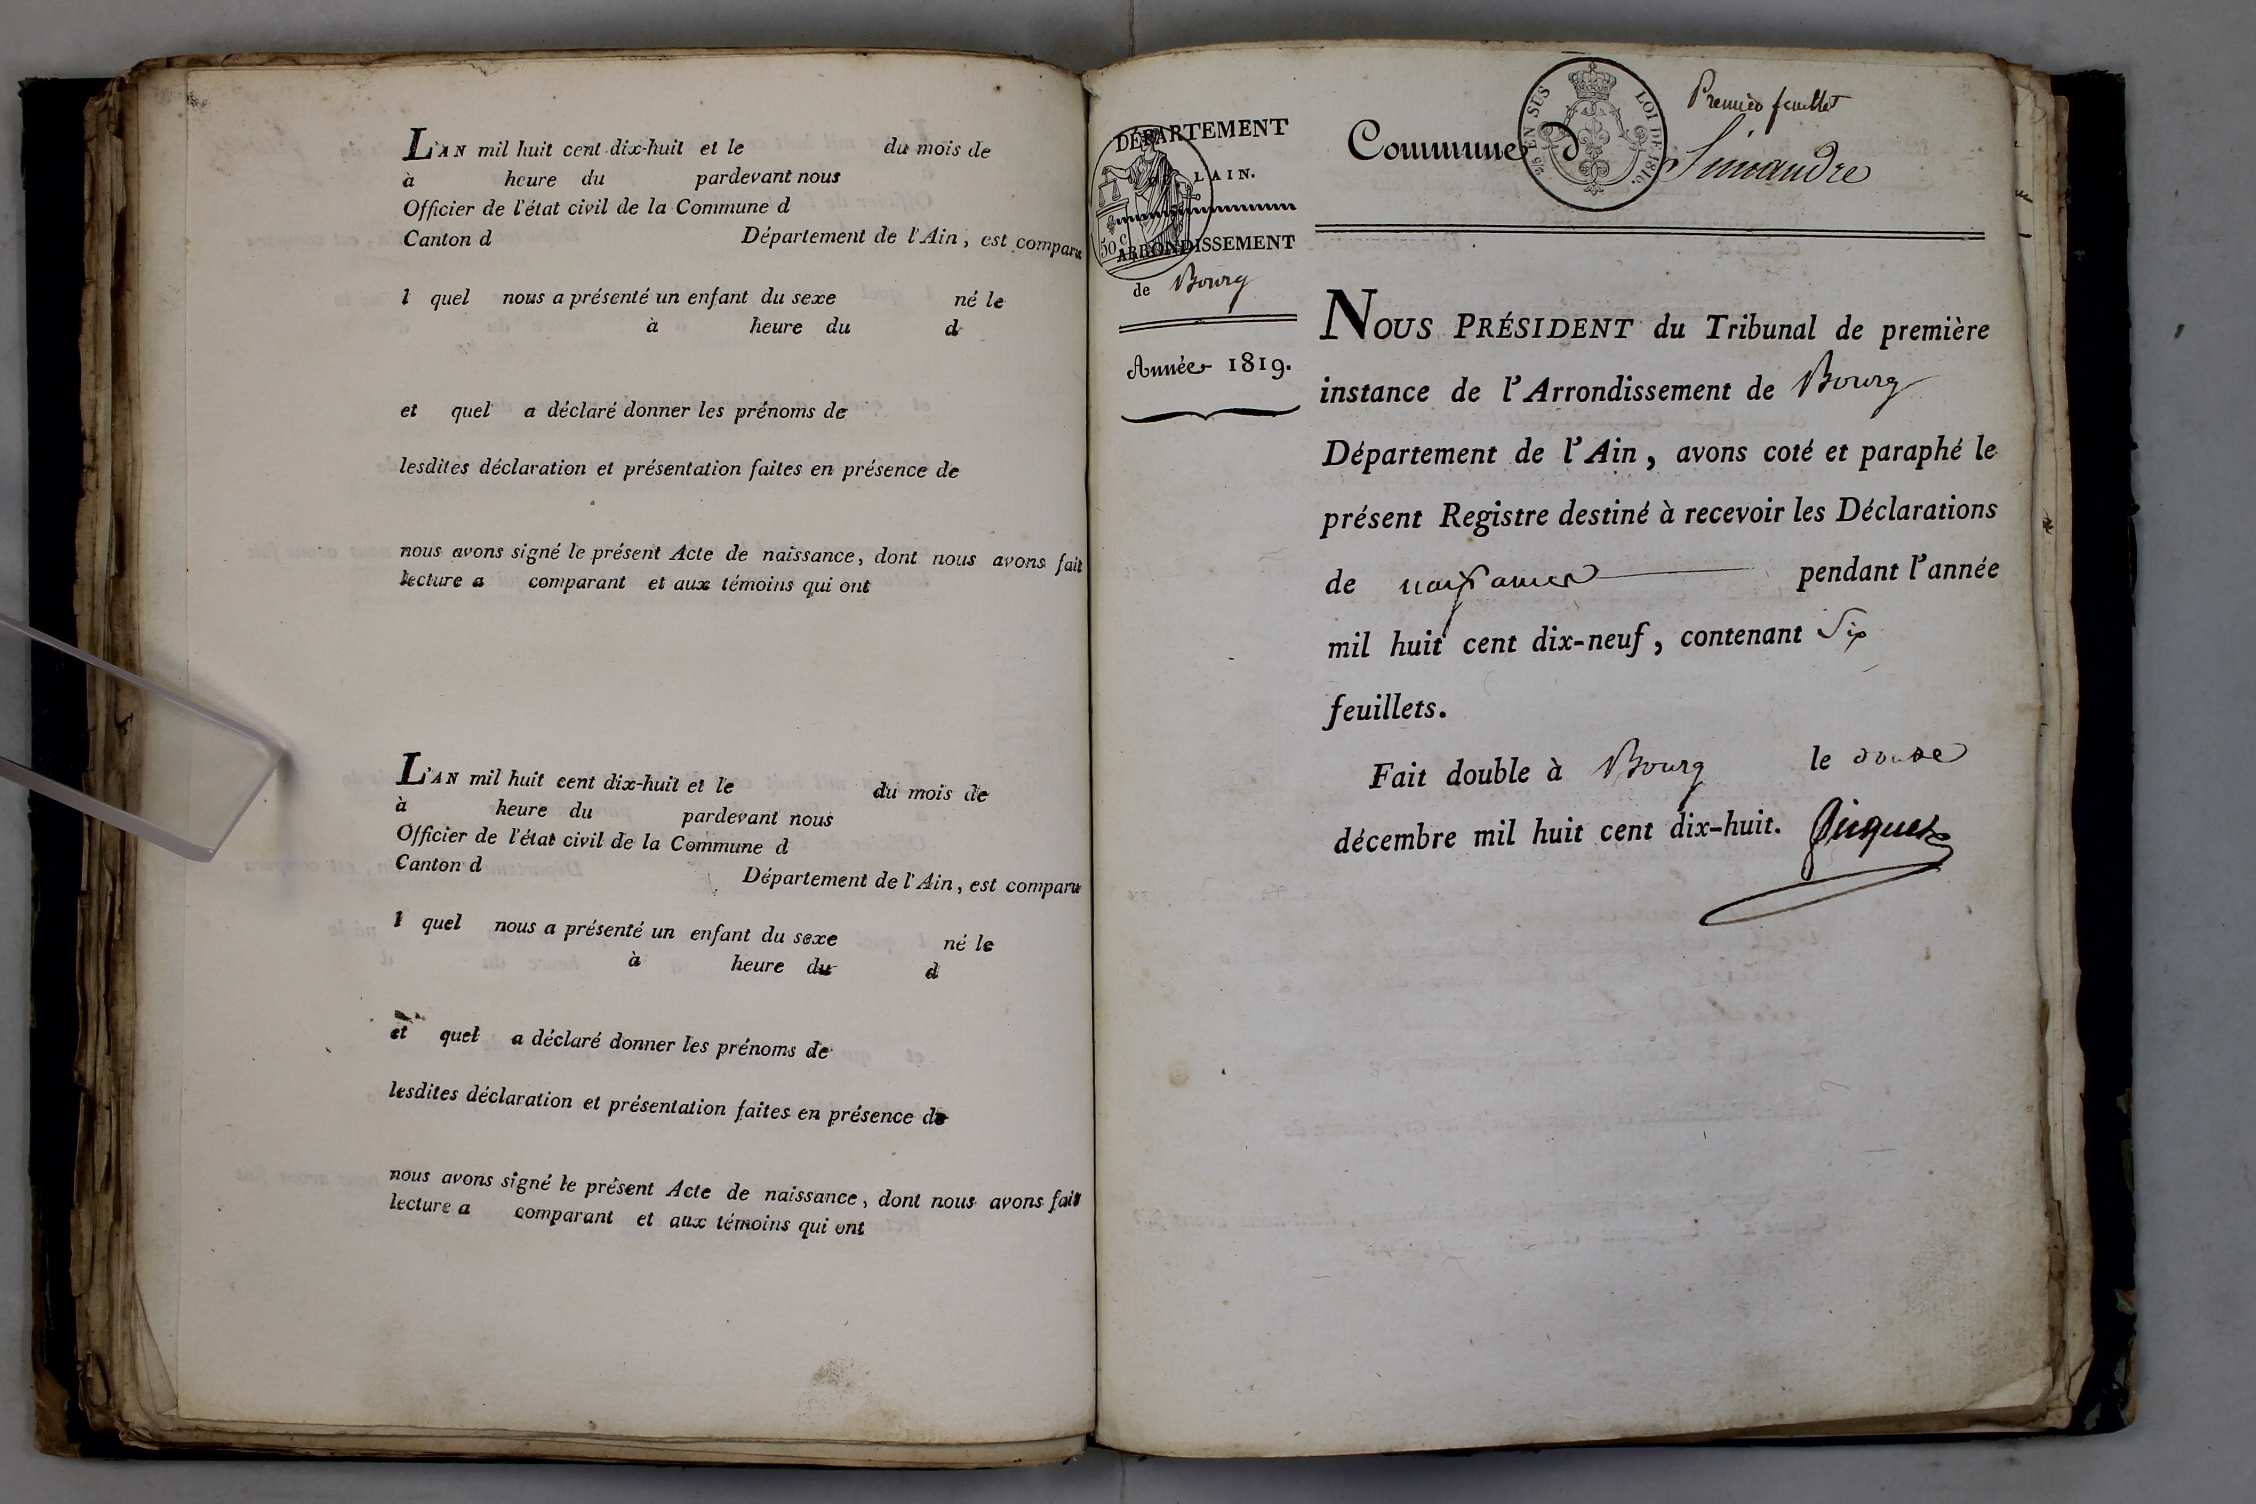 L'AN mil huit cent dix-huit et le du mois de
à heure du pardevant nous
Officier de l'état civil de la Commune d
Canton d Département de l'Ain, est comparu
l quel nous a présenté un enfant du sexe né le
à heure du d
et quel a déclaré donner les prénoms de
lesdites déclaration et présentation faites en présence de
nous avons signé le présent Acte de naissance, dont nous avons fait
lecture a comparant et aux témoins qui ont
L'AN mil huit cent dix-huit et le du mois de
à heure du pardevant nous
Officier de l'état civil de la Commune d
Canton d Département de l'Ain, est comparu
l quel nous a présenté un enfant du sexe né le
à heure du d
et quel a déclaré donner les prénoms de
lesdites déclaration et présentation faites en présence de
nous avons signé le présent Acte de naissance, dont nous avons fait
lecture a comparant et aux témoins qui ont
DÉPARTEMENT
DE L'AIN.
50 c
ARRONDISSEMENT
de Bourg
Année 1819.
EN SUS LOI DE 1816.
Premier feuillet
Commune d Simandre
NOUS PRÉSIDENT du Tribunal de première
instance de l'Arrondissement de Bourg
Département de l'Ain, avons coté et paraphé le
présent Registre destiné à recevoir les Déclarations
de naissances pendant l'année
mil huit cent dix-neuf, contenant Six
feuillets.
Fait double à Bourg le douze
décembre mil huit cent dix-huit.